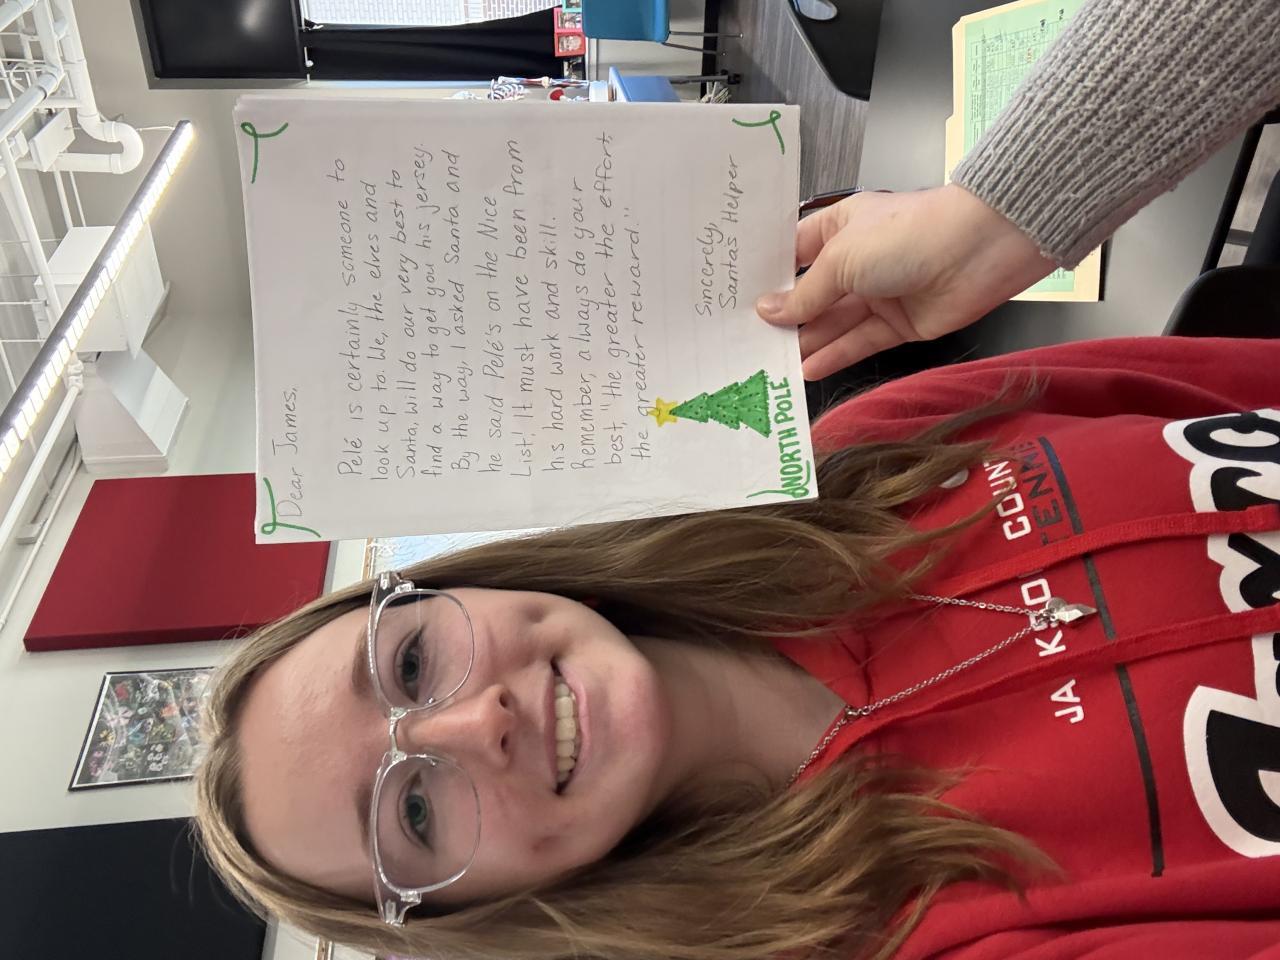 Dear James,
Pelé is certainly someone to
look up to. We, the elves and
Santa, will do our very best to
find a way to get you his jersey.
By the way, I asked Santa and
he said Pelé's on the Nice
List! It must have been from
his hard work and skill.
Remember, always do your
best, "the greater the effort,
the greater reward."
Sincerely,
Santas Helper
NORTH POLE
COUNT
TENNE